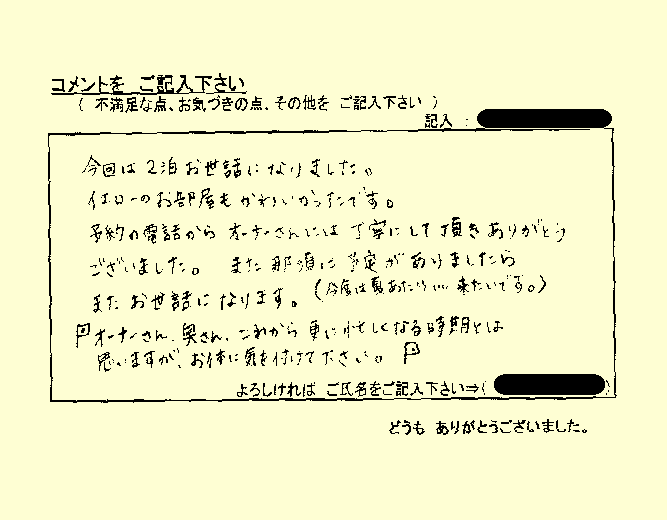 コメントを ご記入下さい
( 不満足な点、お気づきの点、その他を ご記入下さい )
記入 :
今回は 2泊 お世話になりました。
イエローのお部屋も かわいかったです。
予約の電話から オーナーさんには 丁寧にして頂き ありがとう
ございました。 また 那須に 予定が ありましたら
また お世話に なります。(今度は夏あたり 来たいです。)
オーナーさん、奥さん、これから 更に忙しくなる時期とは
思いますが、お体に気を付けて下さい。
よろしければ ご氏名をご記入下さい⇒( )
どうも ありがとうございました。